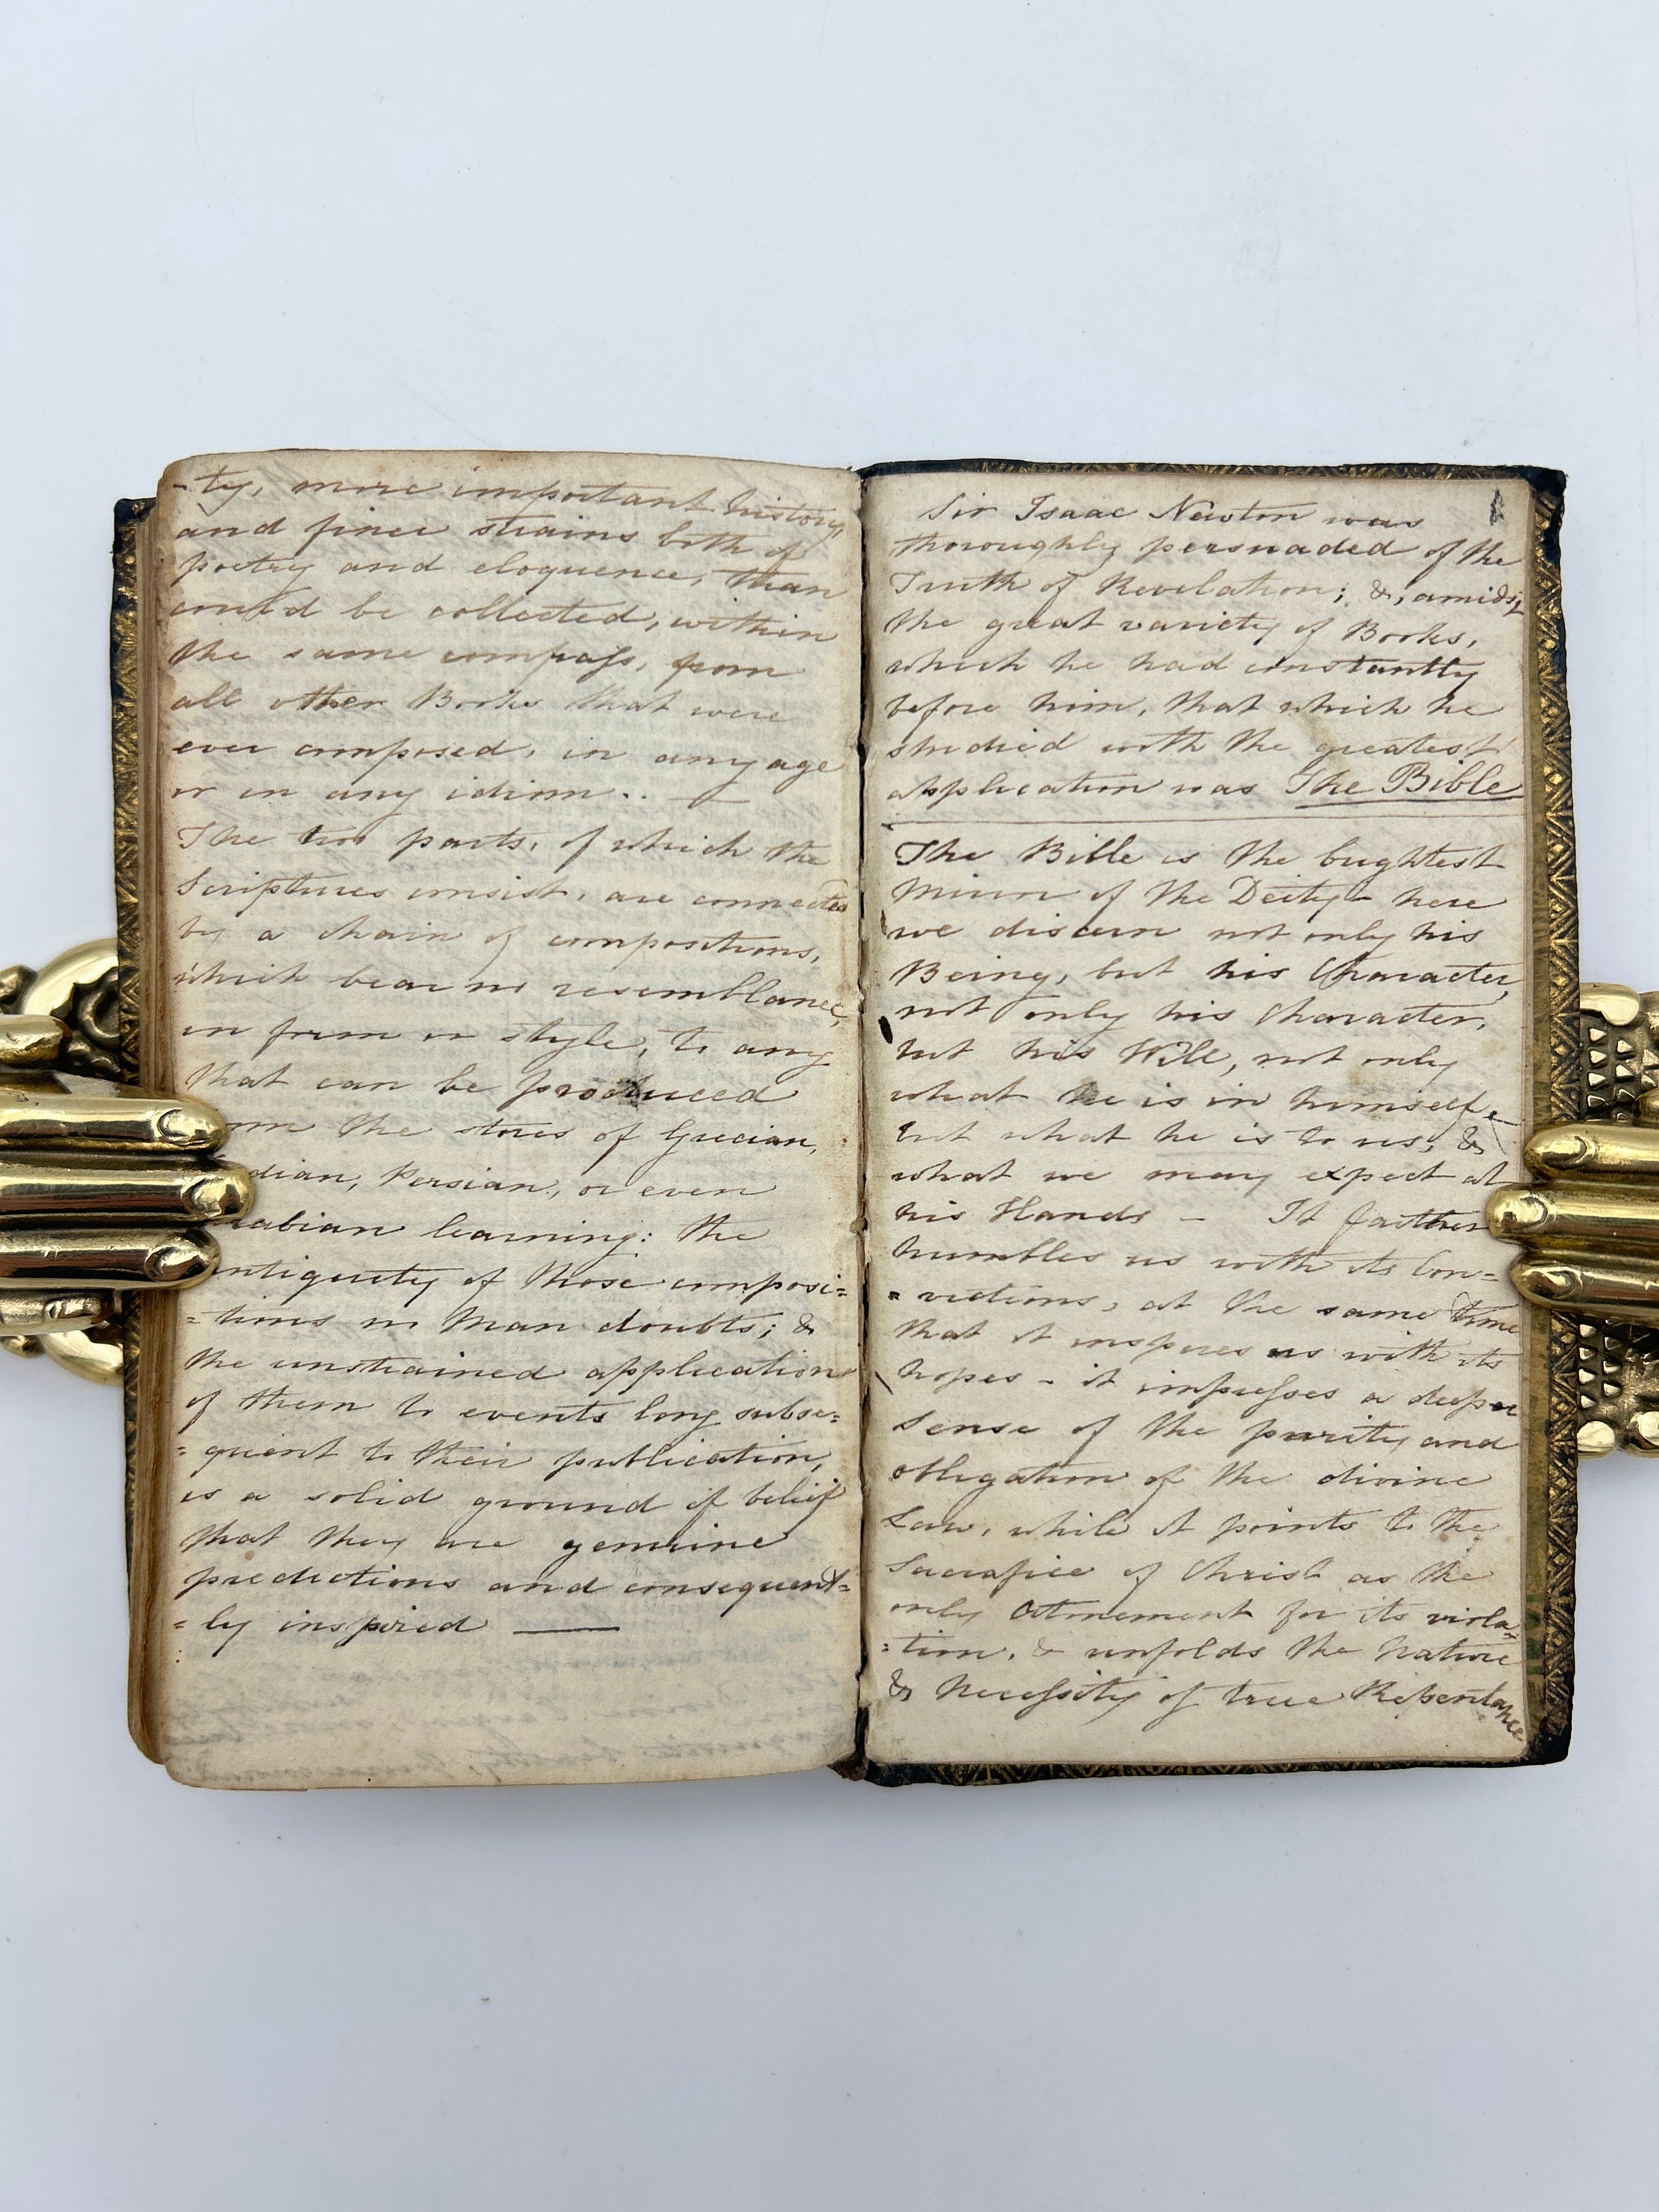 -ty, more important history,
and finer strains both of
poetry and eloquence, than
could be collected, within
the same compaſs, from
all other Books that were
ever composed, in any age
or in any idiom. . —
The two parts, of which the
Scriptures consist, are connected
by a chain of compositions,
which bear no resemblance,
in form or style, to any
that can be produced
om the stores of Grecian,
dian, Persian, or even
rabian learning: the
antiquity of those composi=
=tions no Man doubts; &
the unstrained application
of them to events long subse=
=quent to their publication,
is a solid ground of belief
that they are genuine
predictions and consequent=
=ly inspired —
Sir Isaac Newton was
thoroughly persuaded of the
Truth of Revelation; &, amidst
the great variety of Books,
which he had constantly
before him, that which he
studied with the greatest
application was The Bible
The Bible is the brightest
Mirror of the Deity - here
we discern not only his
Being, but his Character,
not only his Character,
but his Will, not only
what he is in himself,
but what he is to us, &
what we may expect at
his Hands — It farther
humbles us with its Con=
=victions, at the same time
that it inspires us with its
hopes - it impreſses a deeper
Sense of the purity and
obligation of the divine
Law, while it points to the
Sacrafice of Christ as the
only Atonement for its viola=
=tion, & unfolds the Nature
& Neceſsity of true Repentance